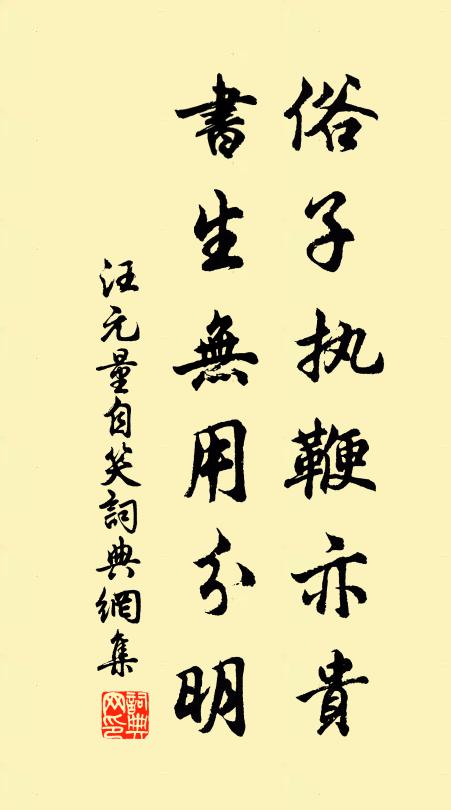 俗子执鞭亦貴
書生無用分明
汪元量自笑詞典網集
詞典网印